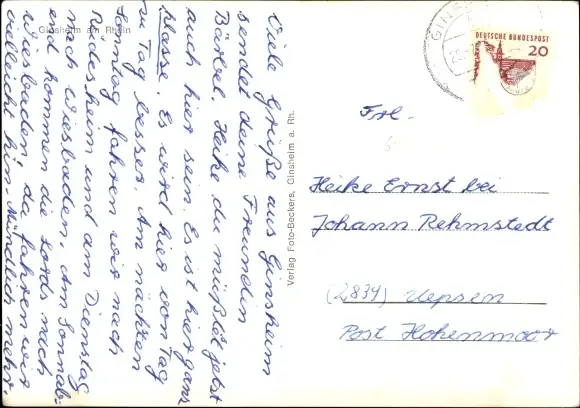 Ginsheim am Rhein
Viele Grüße aus Ginsheim
sendet deine Freundin
Bärbel. Heike du müßtet jetzt
auch hier sein. Es ist hier ganz
klasse. Es wird hier von Tag
zu Tag besser. Am nächsten
Sonntag fahren wir nach
Rüdesheim und am Dienstag
nach Wiesbaden. Am Sonnab=
end kommen die Lords nach
Wiesbaden, da fahren wir
vielleicht hin. Mündlich mehr.
Verlag Foto-Beckers, Ginsheim a. Rh.
DEUTSCHE BUNDESPOST
20
Frl.
Heike Ernst bei
Johann Rehmstedt
(2834) Uepsen
Post Hohenmoor